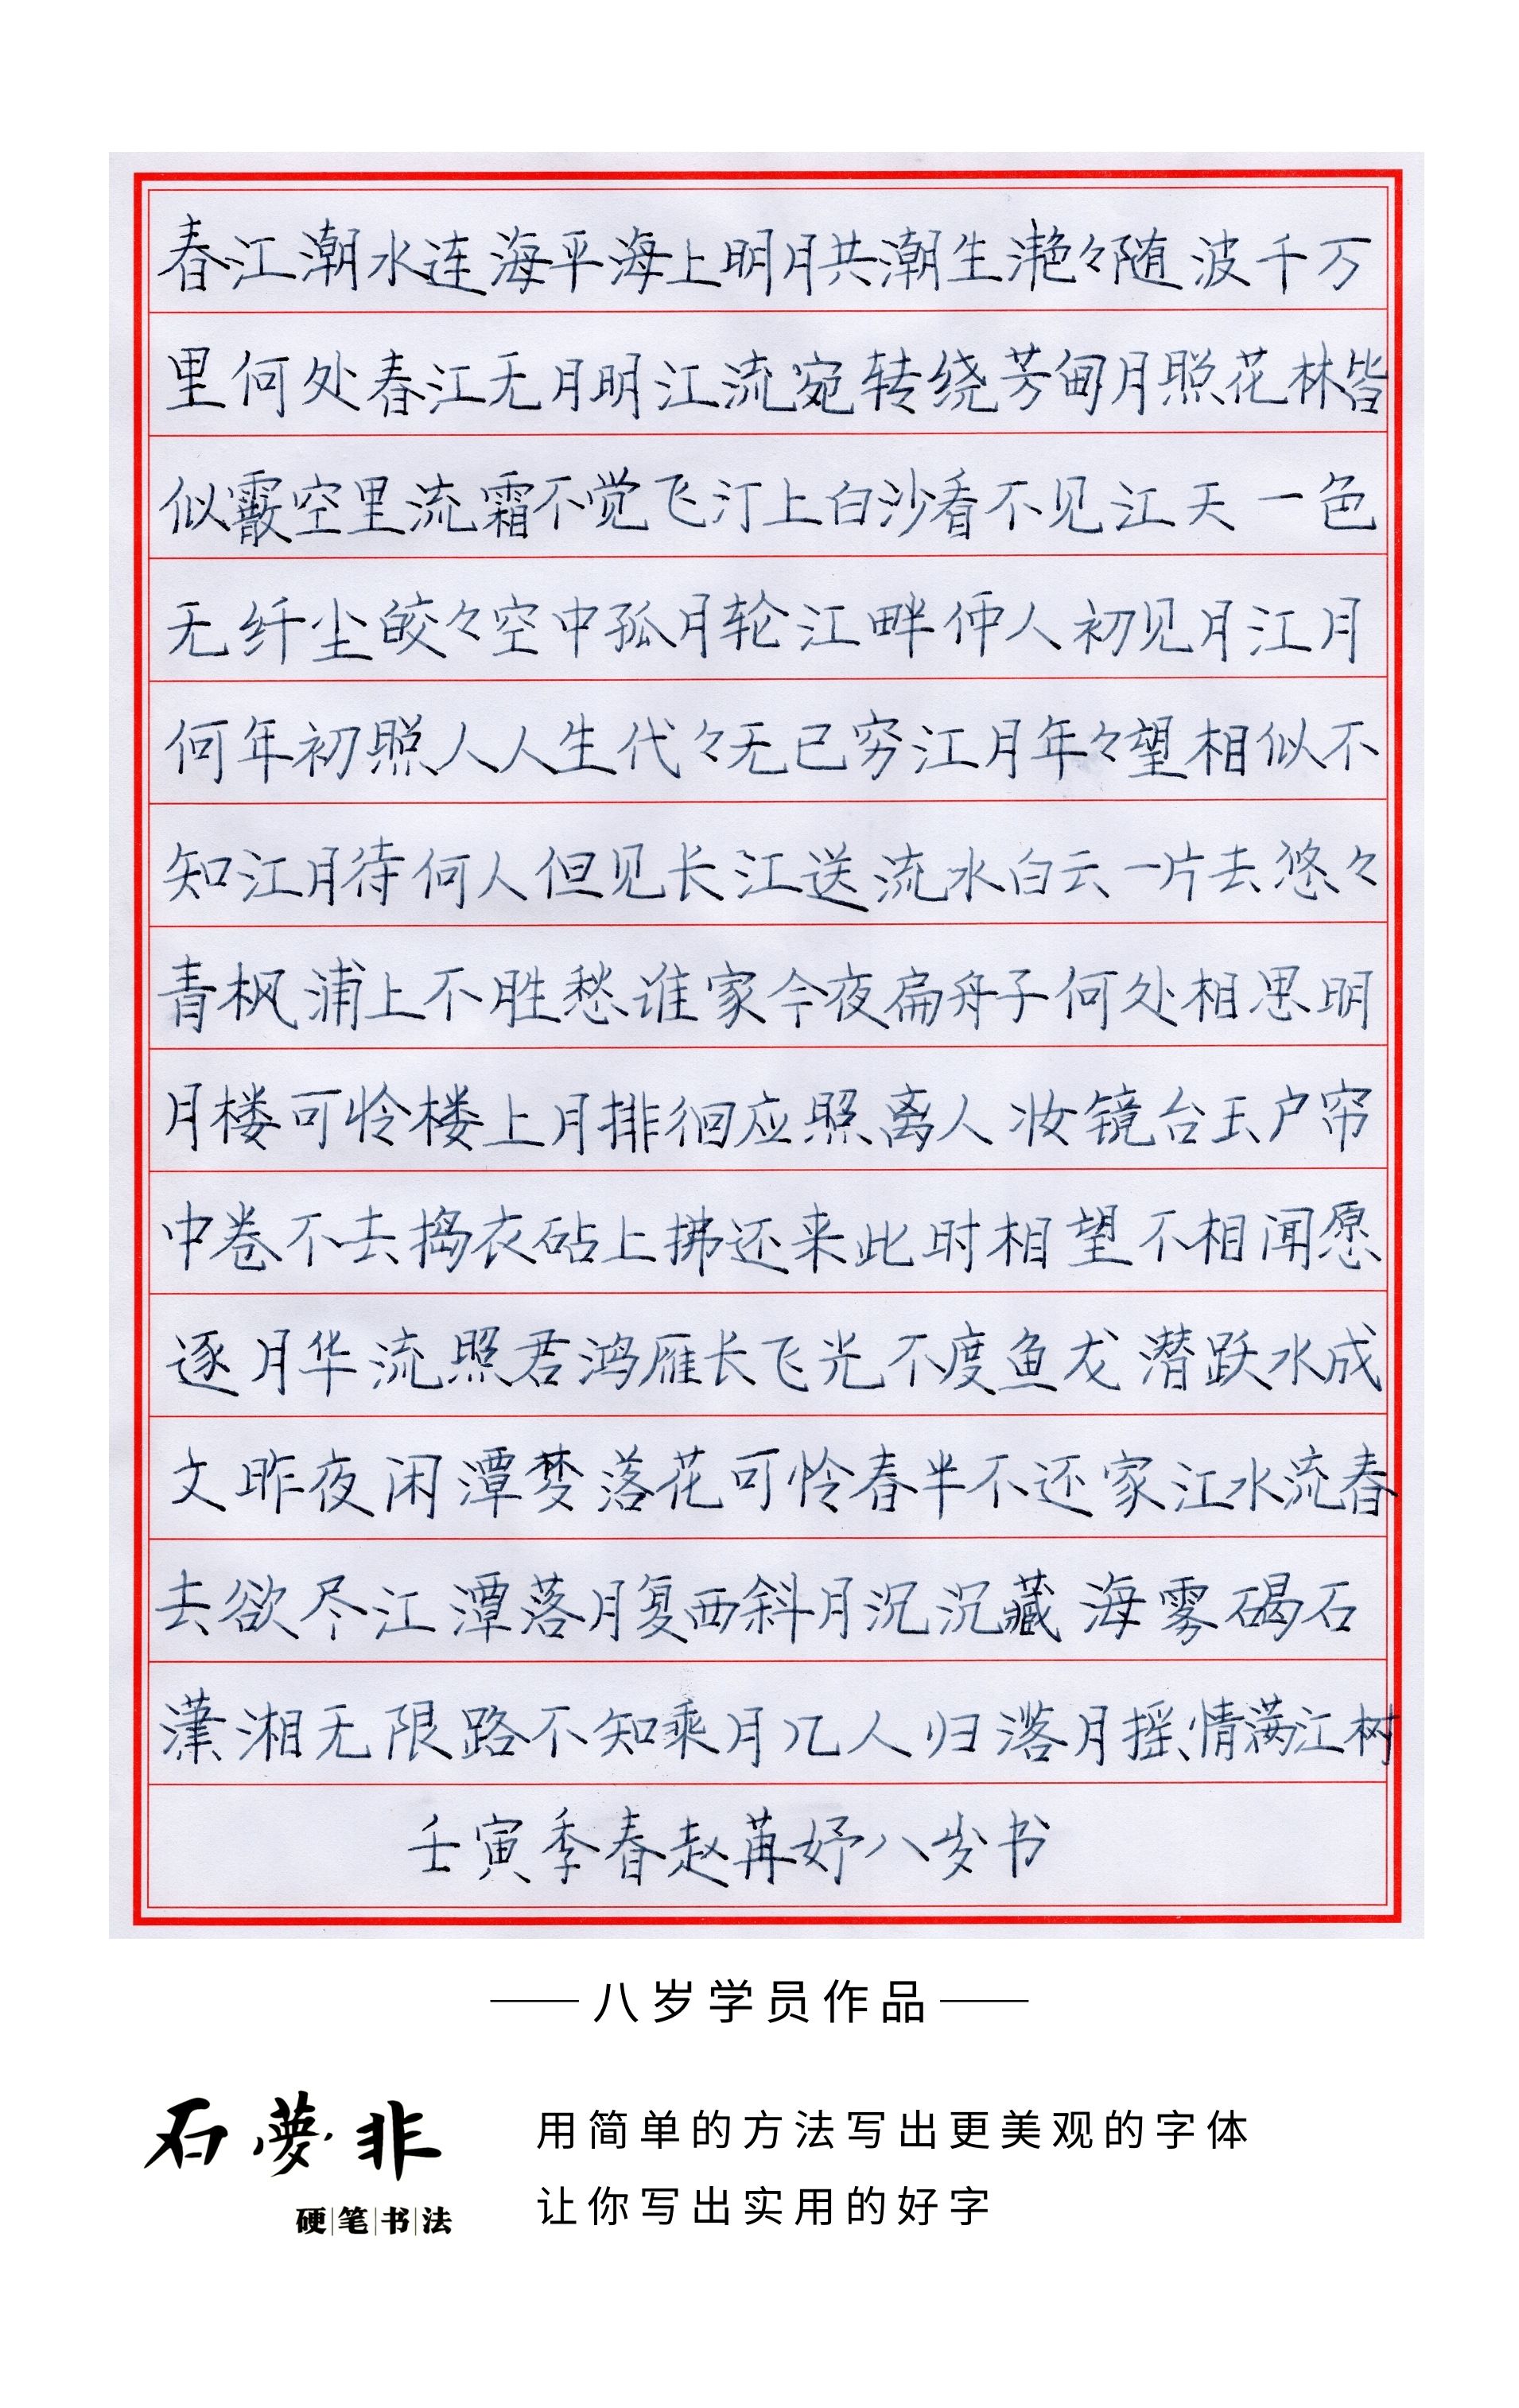 春江潮水连海平海上明月共潮生滟々随波千万
里何处春江无月明江流宛转绕芳甸月照花林皆
似霰空里流霜不觉飞汀上白沙看不见江天一色
无纤尘皎々空中孤月轮江畔仲人初见月江月
何年初照人人生代々无已穷江月年々望相似不
知江月待何人但见长江送流水白云一片去悠々
青枫浦上不胜愁谁家今夜扁舟子何处相思明
月楼可怜楼上月排徊应照离人妆镜台玉户帘
中卷不去捣衣砧上拂还来此时相望不相闻愿
逐月华流照君鸿雁长飞光不度鱼龙潜跃水成
文昨夜闲潭梦落花可怜春半不还家江水流春
去欲尽江潭落月复西斜月沉沉藏海雾碣石
潇湘无限路不知乘月几人归落月摇情满江树
壬寅季春赵苒妤八岁书
八岁学员作品
石夢非
硬笔书法
用简单的方法写出更美观的字体
让你写出实用的好字